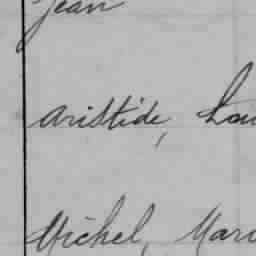 Jean
Aristide, Lou
Michel, Mari